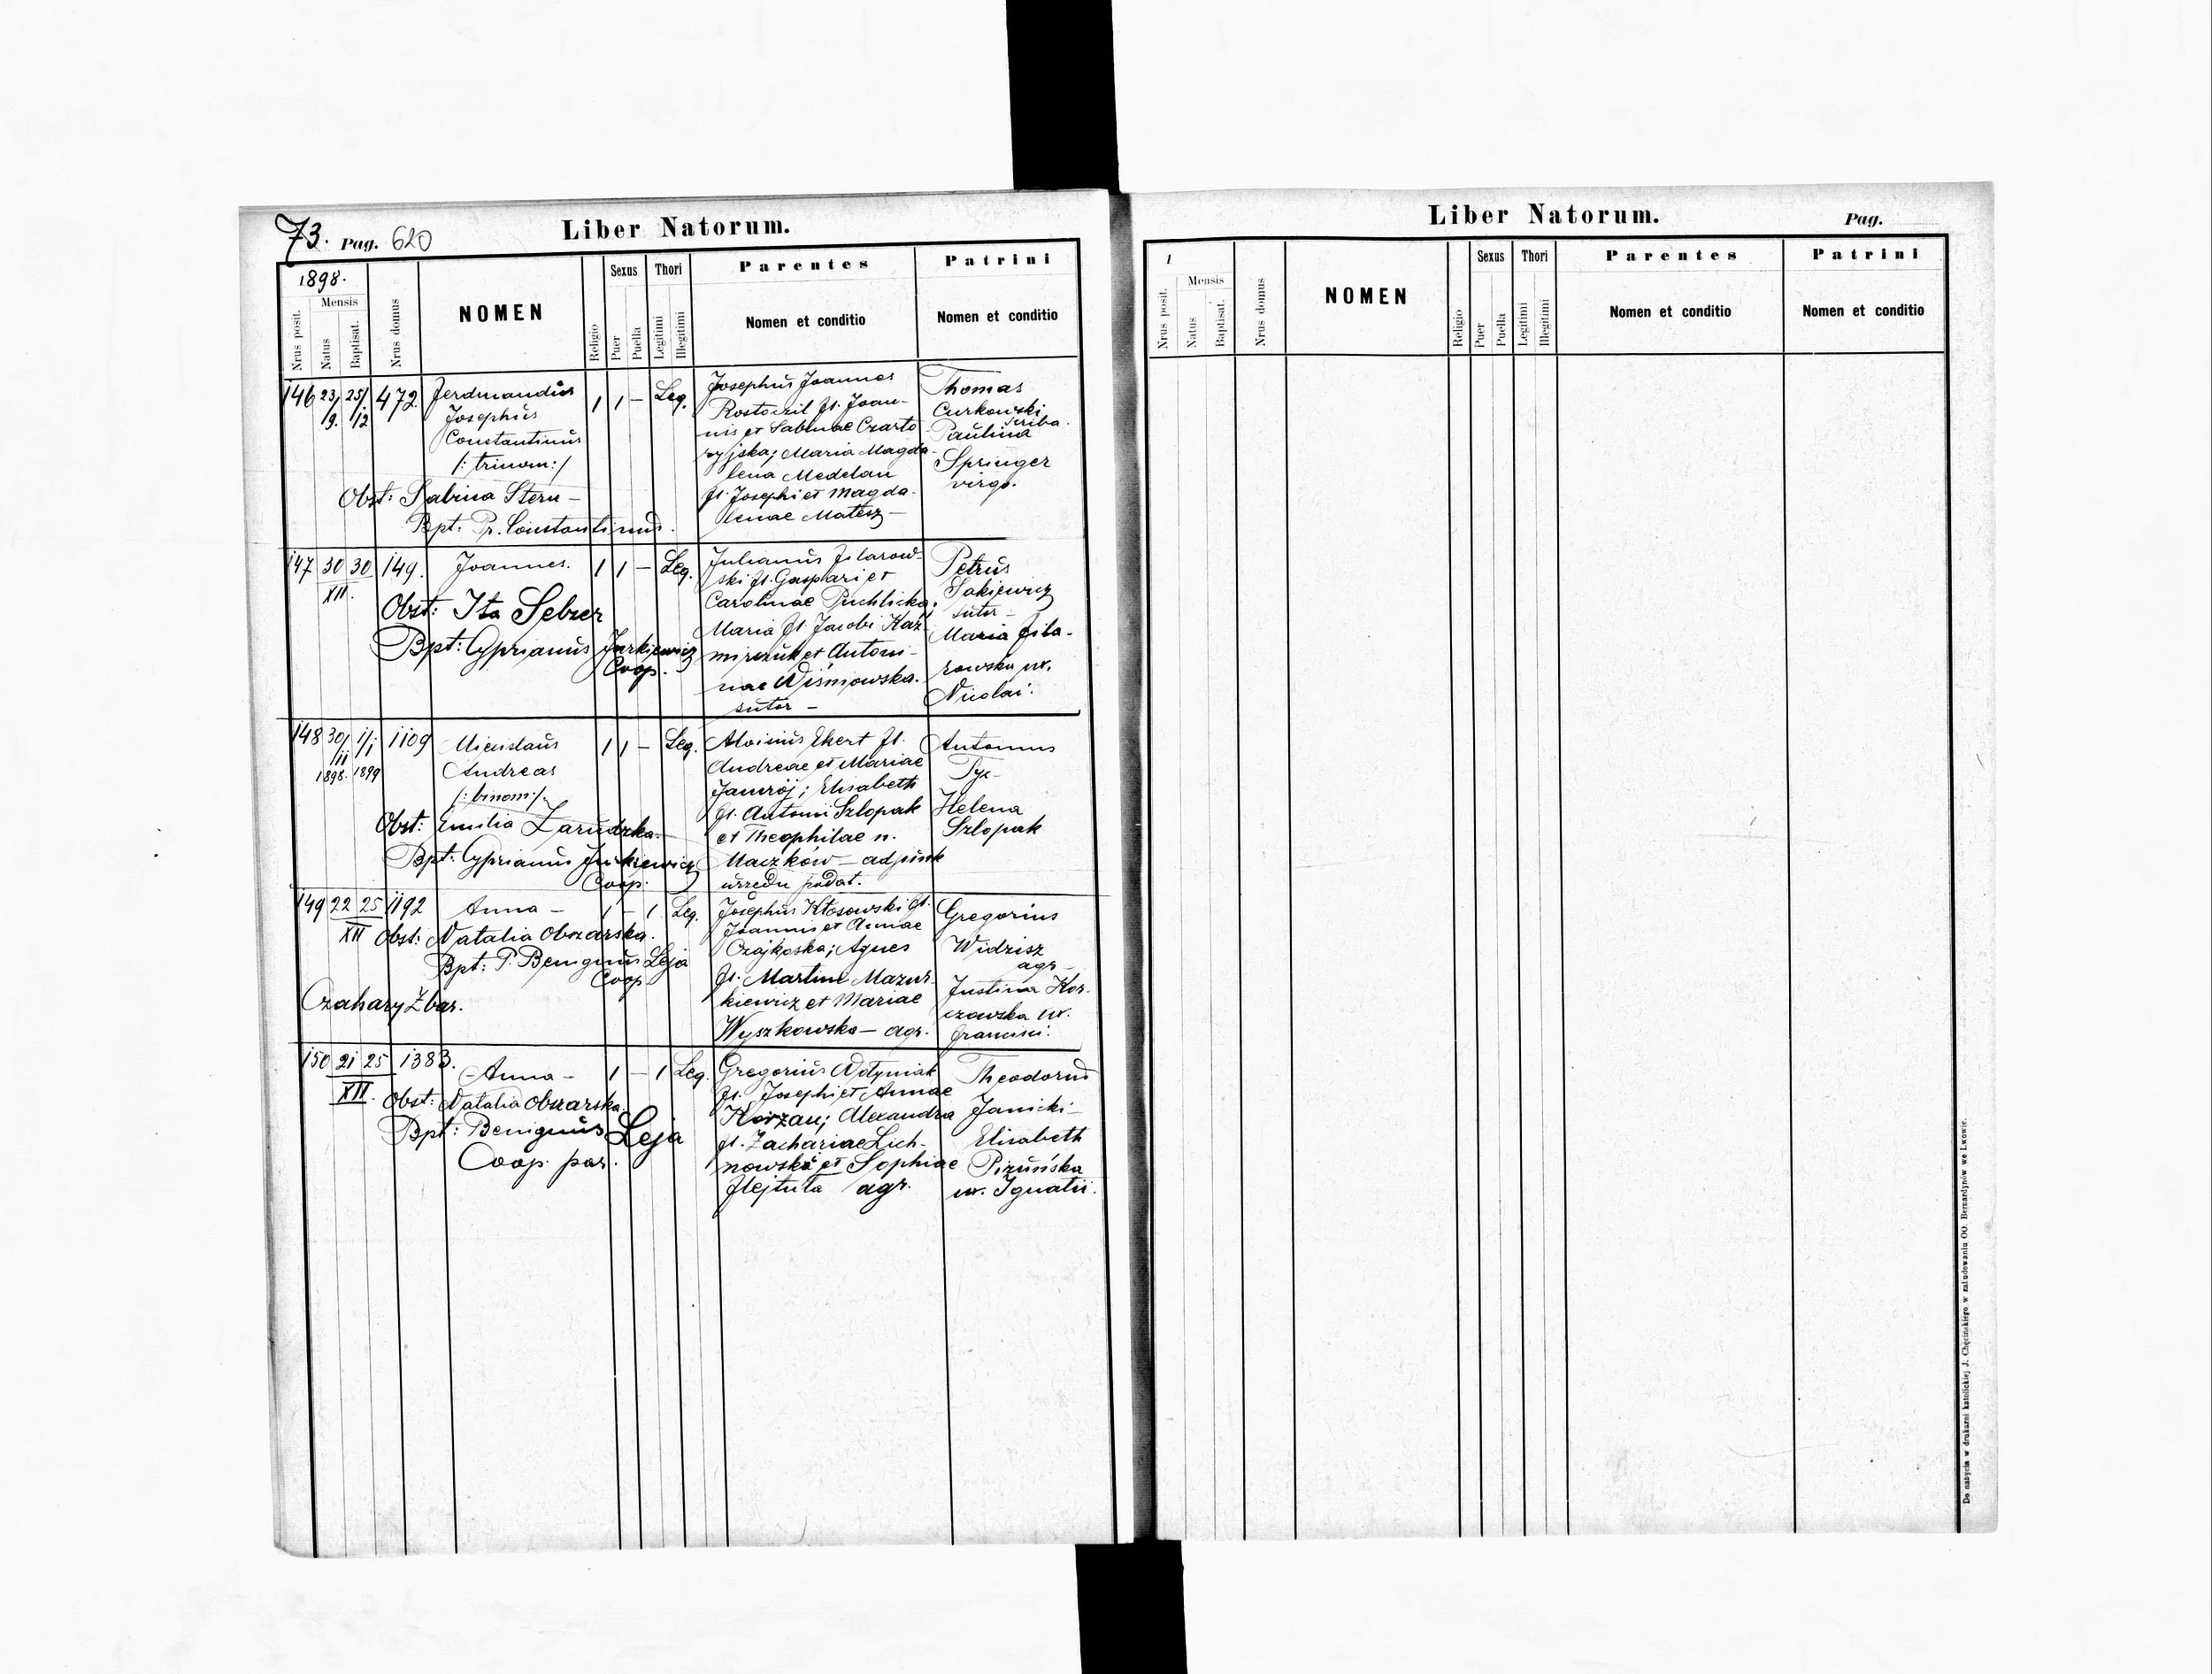 73. Pag. 620
Liber Natorum.
1898.
Mensis
Nrus posit.
Natus
Baptisat.
Nrus domus
NOMEN
Religio
Sexus
Puer
Puella
Thori
Legitimi
Illegitimi
Parentes
Nomen et conditio
Patrini
Nomen et conditio
146 23/9. 25/12 472. Ferdinandus 1 1 – Leg.
Josephus
Constantinus
/: trinom:/
Obst: Sabina Stern –
Bpt: Pr. Constantinus.
Josephus Joannes
fl. Joan-
nis et Sabinae Czarto-
ryjska; Maria Magda-
lena Medelan
fl. Josephi et Magda-
lenae Matesz –
Thomas
Curkowski
scriba.
Paulina
Springer
virgo.
147 30 30 149. Joannes. 1 1 – Leg.
XII.
Obst: Ita Selzer
Bpt: Cyprianus Jurkiewicz
Coop.
Julianus Filarow-
ski fl. Gaspari et
Carolinae Puchlicka;
Maria fl. Jacobi Kaź-
mirczuk et Antoni-
nae Wiśniowska.
sutor –
Petrus
Sakiewicz
sutor –
Maria Fila-
rowska ux.
Nicolai.
148 30/11 1/1 1109 Miecislaus 1 1 – Leg.
1898. 1899
Andreas
/: binom:/
Obst: Emilia Zarudzka.
Bpt: Cyprianus Jurkiewicz
Coop.
Aloisius Ekert fl.
Andreae et Mariae
Jamrój; Elisabeth
fl. Antonii Szlopak
et Theophilae n.
Maczków – adjunk
urzedu podat.
Antonius
Tyc –
Helena
Szlopak
149 22 25 1192 Anna – 1 – 1 Leg.
XII
Obst: Natalia Obszarska.
Bpt: P. Benignus Leja
Coop
Czahary Zbar.
Josephus Kłosowski fl.
Joannis et Annae
Czajkoska; Agnes
fl. Martini Mazur-
kiewicz et Mariae
Wyszkowska – agr.
Gregorius
Widzisz
agr –
Justina Kor-
czowska ux.
Francisci.
150 21 25 1383. – Anna – 1 – 1 Leg.
XII.
Obst: Natalia Obszarska.
Bpt: Benignus Leja
Coop. par.
Gregorius Wołyniak
fl. Josephi et Annae
Korzan; Alexandra
fl. Zachariae Lich-
nowska et Sophiae
Hejtuła agr.
Theodorus
Janicki –
Elisabeth
Pizuńska
ux. Ignatii.
Liber Natorum.
Pag.
1
Mensis
Nrus posit.
Natus
Baptisat.
Nrus domus
NOMEN
Religio
Sexus
Puer
Puella
Thori
Legitimi
Illegitimi
Parentes
Nomen et conditio
Patrini
Nomen et conditio
Do nabycia w drukarni katolickiej J. Chęcińskiego w zabudowaniu OO. Bernardynów we Lwowie.